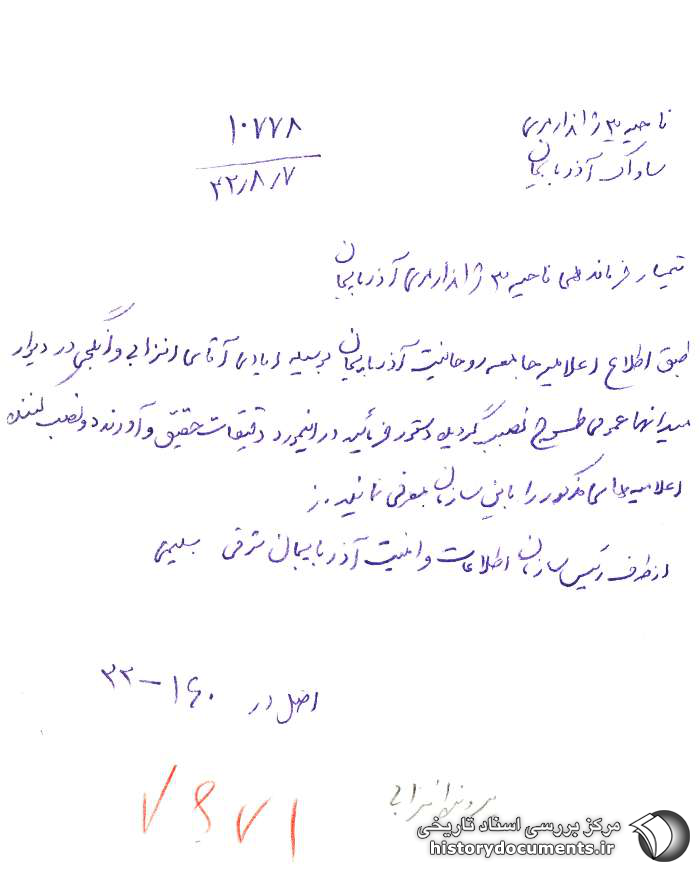 ناحیه ۳ ژاندارمری
ساواک آذربایجان
۱۰۷۷۸
۴۲/۸/۷
تیمسار فرماندهی ناحیه ۳ ژاندارمری آذربایجان
طبق اطلاع اعلامیه جامعه روحانیت آذربایجان بوسیله ایادی آقای انزابی و انگجی در دیوار
میدانها عمومی نصب گردیده دستور فرمائید در اینمورد دقیقات تحقیق و آورنده و نصب کننده
اعلامیه های مذکور را باین سازمان معرفی نمایند. ز
از طرف رئیس سازمان اطلاعات و امنیت آذربایجان شرقی سلیمی
اصل در ۱۴۰-۳۳
پرونده انزابی
مرکز بررسی اسناد تاریخی
historydocuments.ir